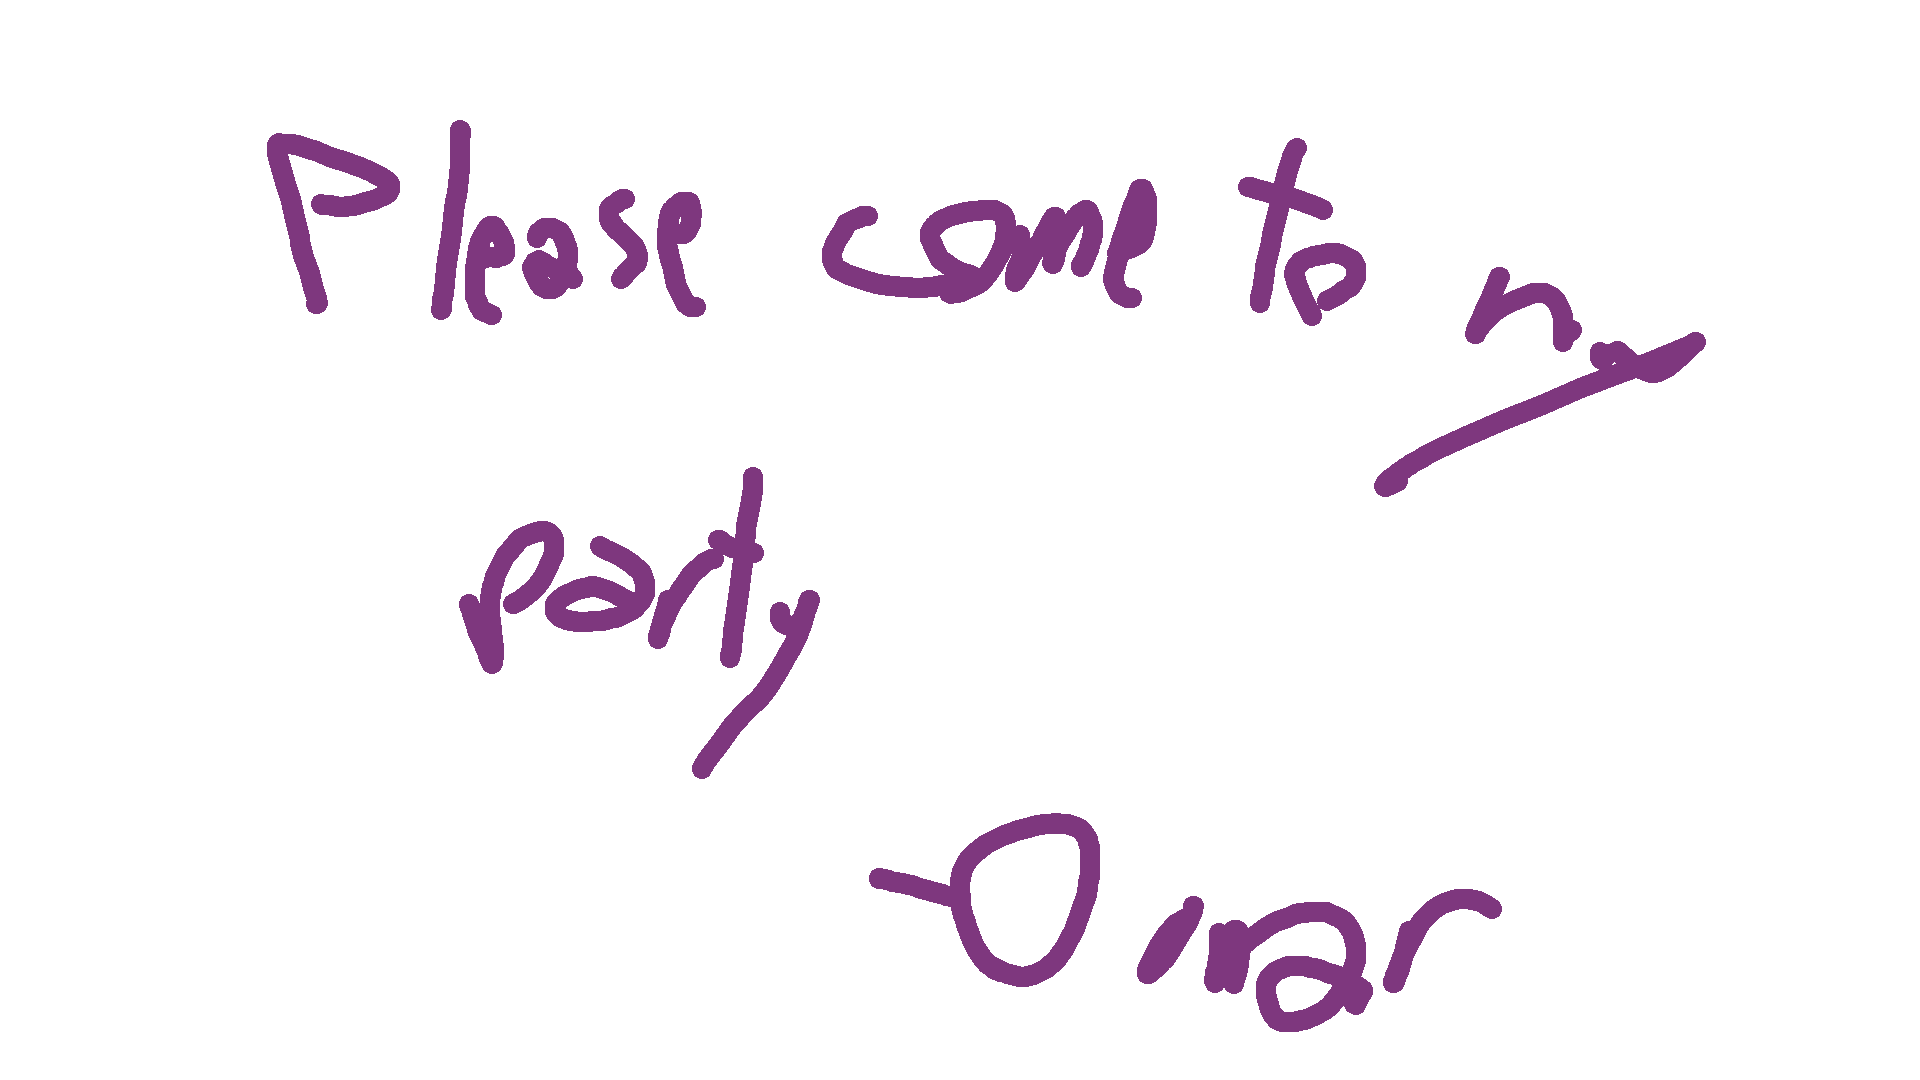 Please come to my
party
-Omar